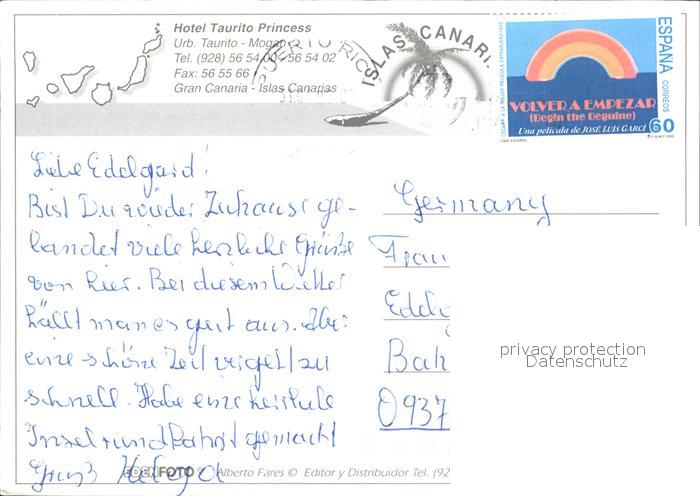 Hotel Taurito Princess
Urb. Taurito - Mogan
Tel. (928) 56 54 00 - 56 54 02
Fax: 56 55 66
Gran Canaria - Islas Canarias
PUERTO RICO
ISLAS CANARI
ESPAÑA
CORREOS
VOLVER A EMPEZAR
(Begin the Beguine)
Una película de JOSÉ LUIS GARCI
60
Liebe Edelgard!
Bist Du wieder Zuhause ge-
landet viele herzliche Grüße
von hier. Bei diesem Wetter
hällt man es gut aus. Aber
eine schöne Zeit vergeht zu
schnell. Habe eine herrliche
Inselrundfahrt gemacht
Gruß Helga
Germany
Frau
Edelg
Bah
0937
privacy protection
Datenschutz
EDENFOTO Alberto Fares © Editor y Distribuidor Tel. (92